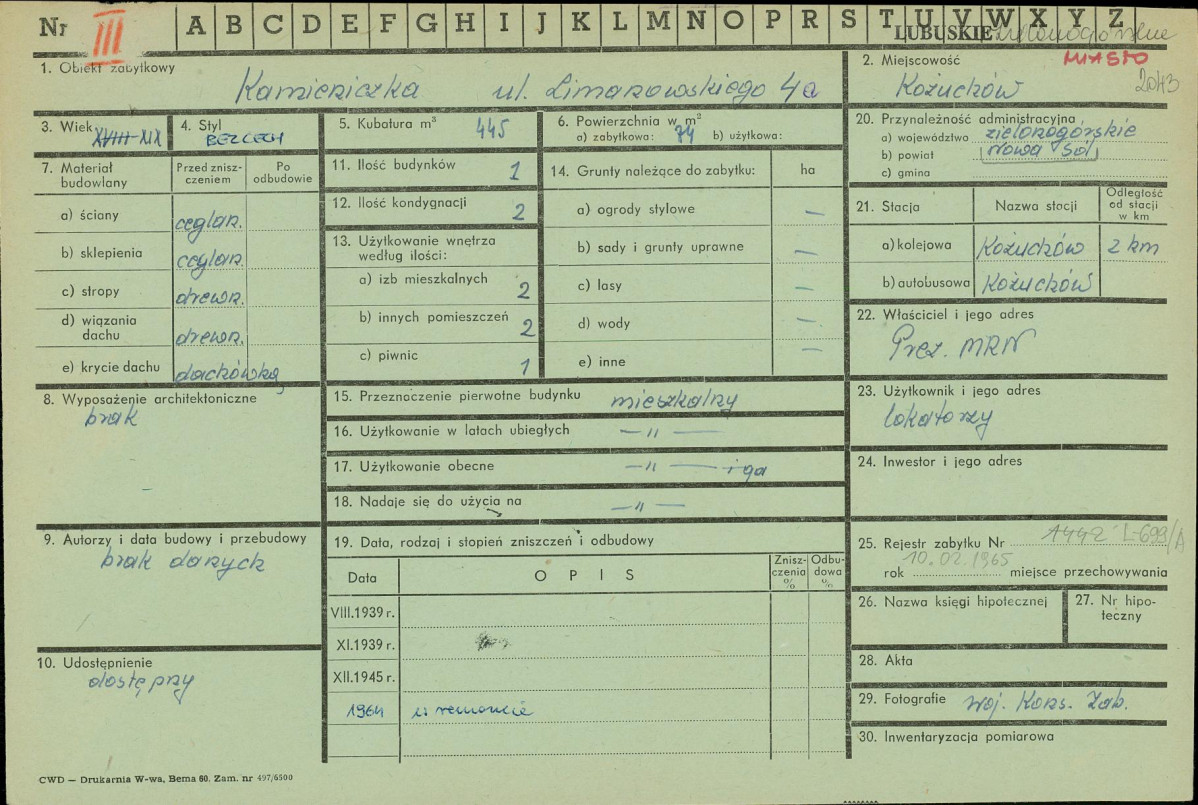 Nr III A B C D E F G H I J K L M N O P R S T U V W X Y Z
LUBUSKIE zielonogórskie
1. Obiekt zabytkowy
Kamieniczka ul. Limanowskiego 4a
2. Miejscowość MIASTO
Kożuchów 2043
3. Wiek XVIII-XIX
4. Styl
BEZ CECH
5. Kubatura m³ 445
6. Powierzchnia w m²
a) zabytkowa: 74 b) użytkowa:
20. Przynależność administracyjna
a) województwo zielonogórskie
b) powiat Nowa Sól
c) gmina
7. Materiał budowlany
Przed zniszczeniem
Po odbudowie
a) ściany ceglan.
b) sklepienia ceglan.
c) stropy drewn.
d) wiązania dachu drewn.
e) krycie dachu dachówką
11. Ilość budynków 1
12. Ilość kondygnacji 2
13. Użytkowanie wnętrza
według ilości:
a) izb mieszkalnych 2
b) innych pomieszczeń 2
c) piwnic 1
14. Grunty należące do zabytku: ha
a) ogrody stylowe —
b) sady i grunty uprawne —
c) lasy —
d) wody —
e) inne —
21. Stacja
Nazwa stacji
Odległość
od stacji
w km
a) kolejowa Kożuchów 2 km
b) autobusowa Kożuchów
22. Właściciel i jego adres
Prez. MRN
8. Wyposażenie architektoniczne
brak
15. Przeznaczenie pierwotne budynku mieszkalny
16. Użytkowanie w latach ubiegłych — " —
17. Użytkowanie obecne — " —
18. Nadaje się do użycia na — " —
23. Użytkownik i jego adres
lokatorzy
24. Inwestor i jego adres
9. Autorzy i data budowy i przebudowy
brak danych
10. Udostępnienie
dostępny
19. Data, rodzaj i stopień zniszczeń i odbudowy
Data
O P I S
Zniszczenia %
Odbudowa %
VIII.1939 r.
XI.1939 r.
XII.1945 r.
1964 w remoncie
25. Rejestr zabytku Nr 1442 L-699/A
rok 10.02.1965 miejsce przechowywania
26. Nazwa księgi hipotecznej
27. Nr hipoteczny
28. Akta
29. Fotografie Woj. Kons. Zab.
30. Inwentaryzacja pomiarowa
CWD — Drukarnia W-wa, Bema 60. Zam. nr 497/6500